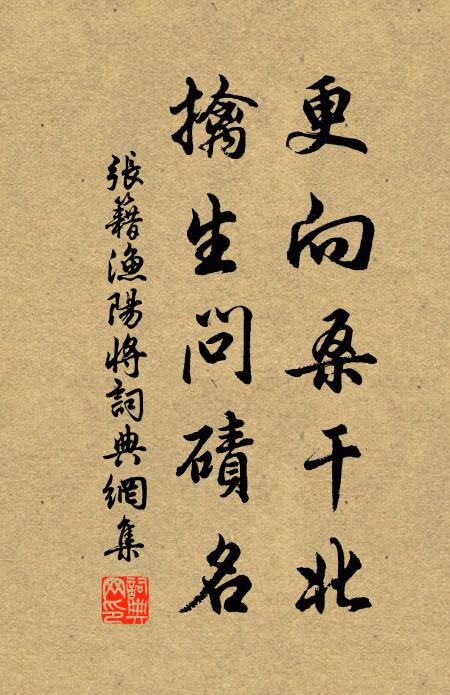 更向桑干北
擒生問磧名
張籍漁陽將詞典網集
詞典網印